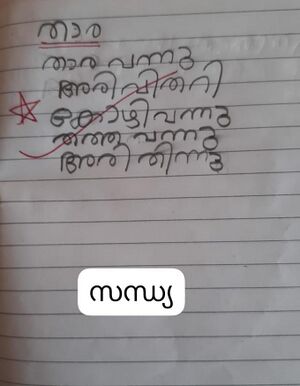 താര
താര വന്നു
അരി വിതറി
കോഴി വന്നു
തത്ത വന്നു
അരി തിന്നു
സന്ധ്യ